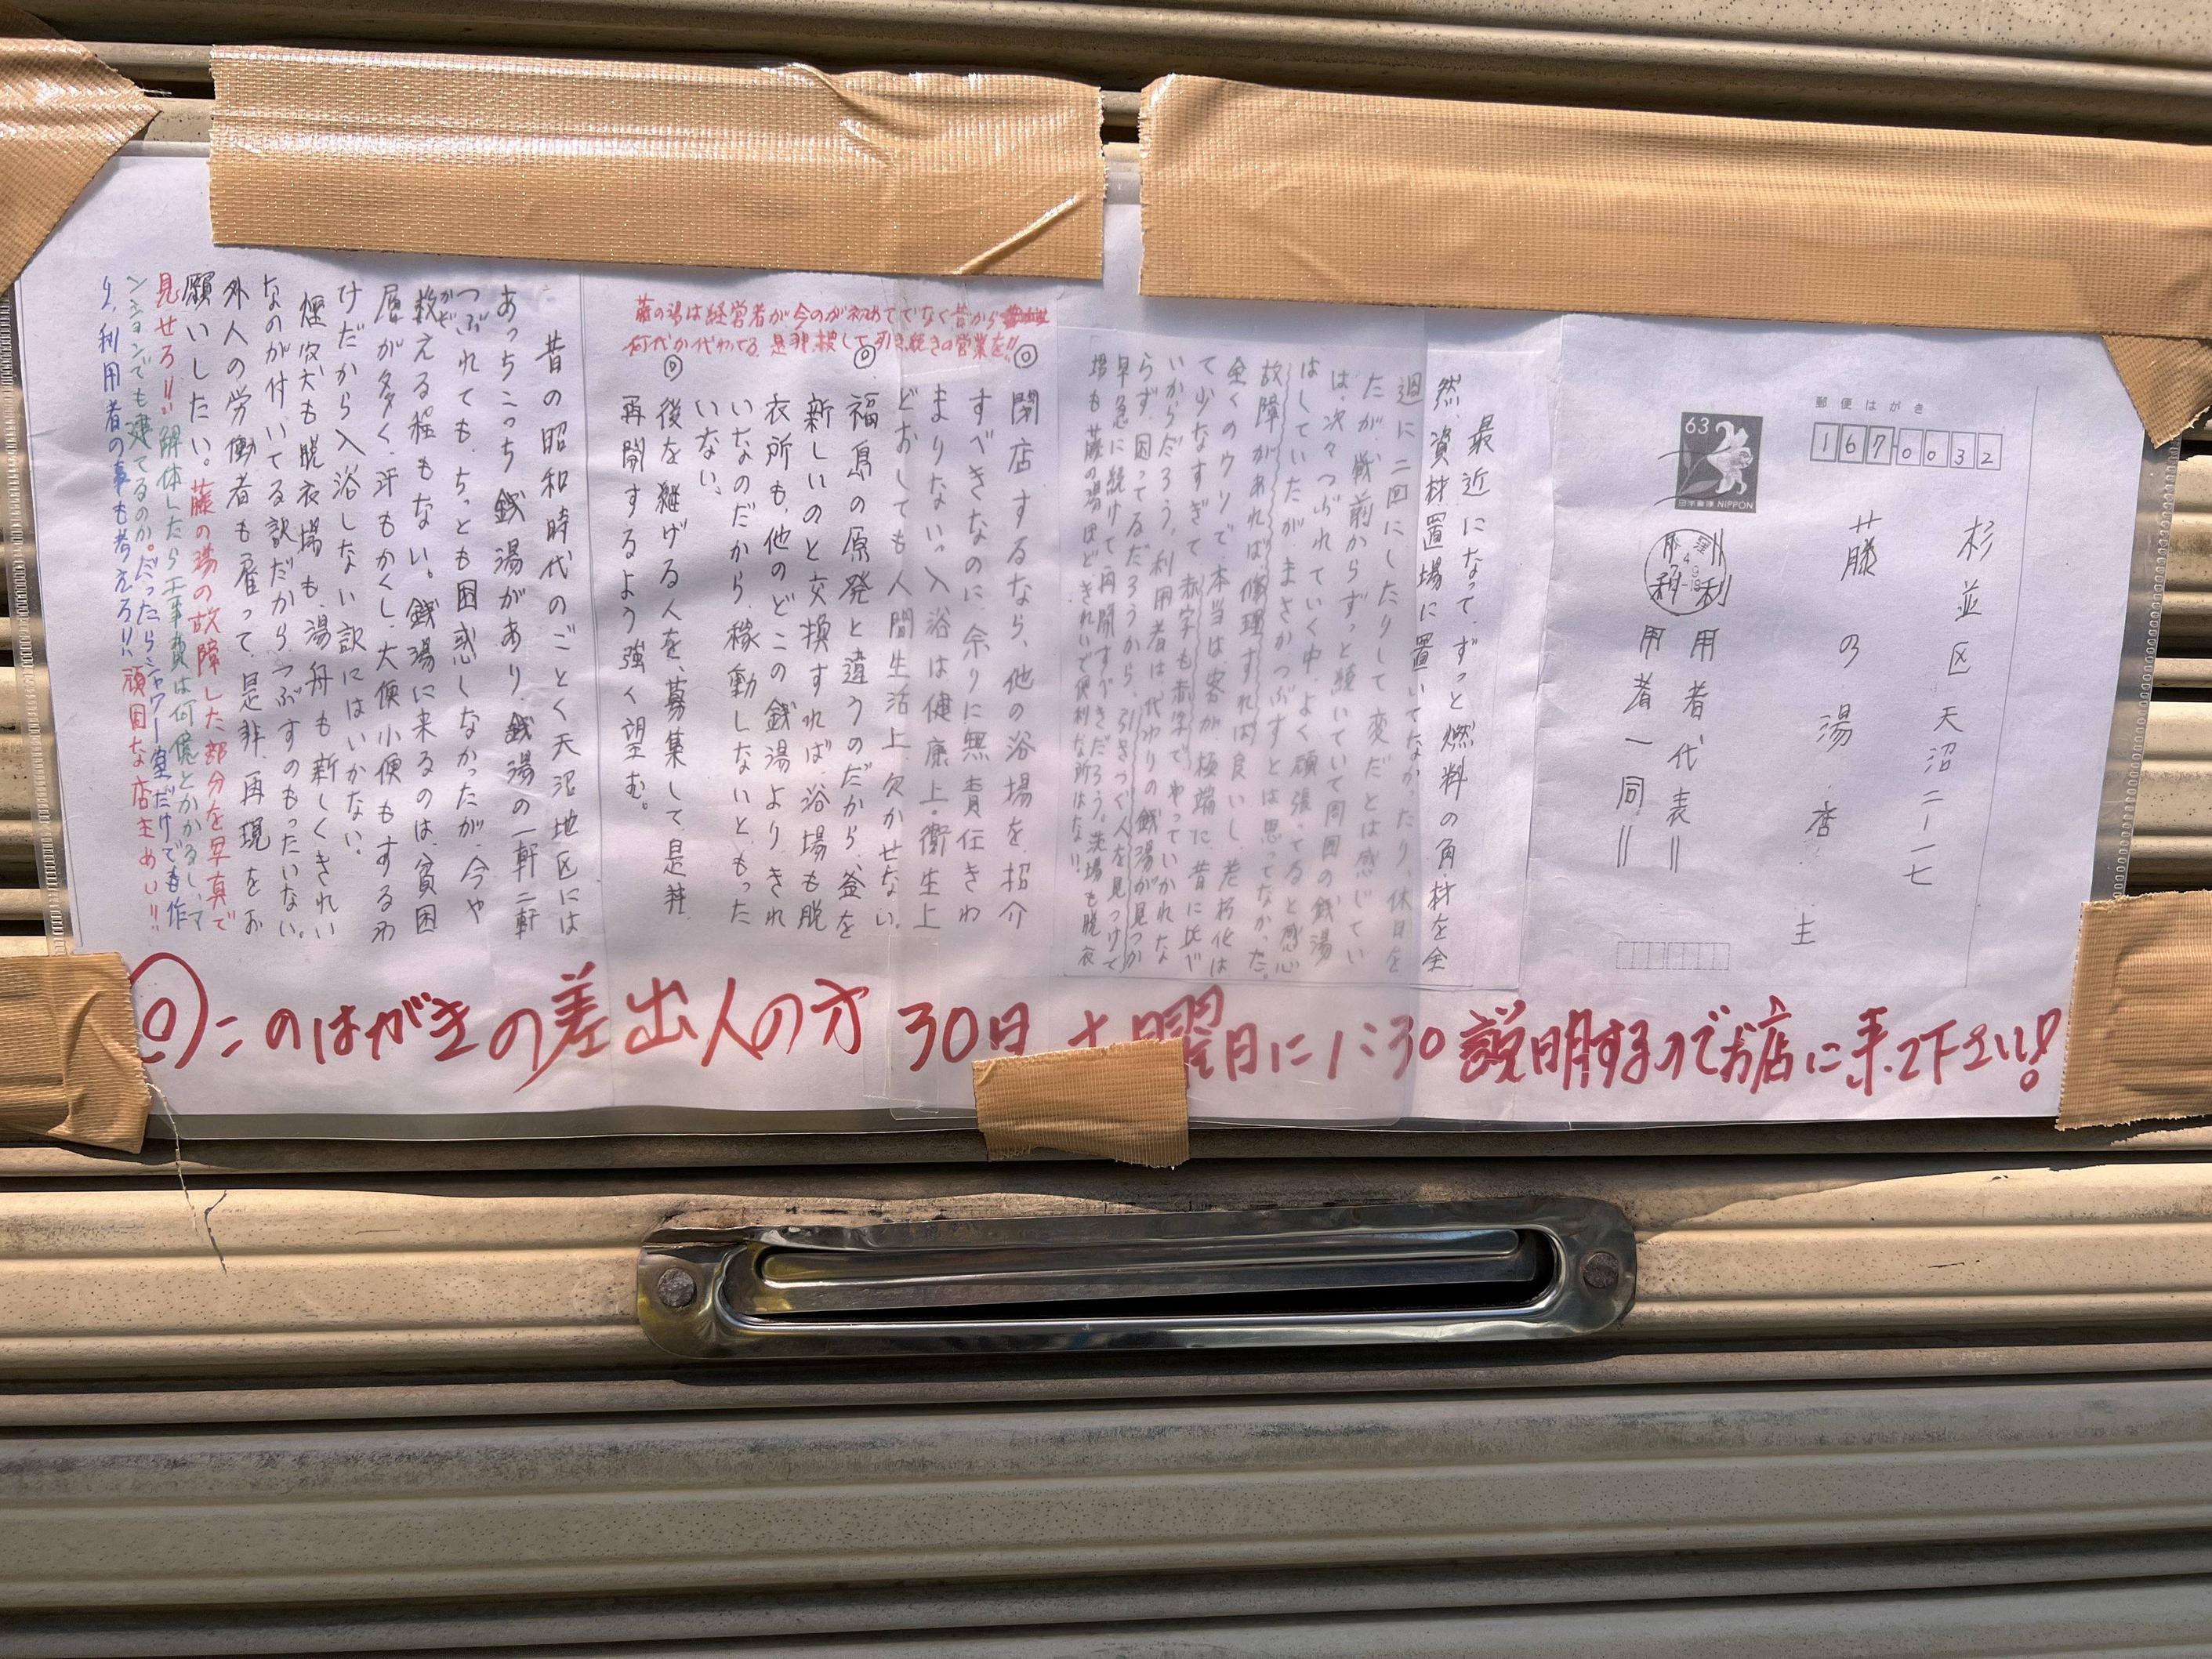 郵便はがき
167-0032
63
日本郵便 NIPPON
杉並区天沼二-一七
藤の湯 店主
利用者代表
利用者一同
最近になって、ずっと燃料の角材を全
然、資材置場に置いてなかったり、休日を
週に二回にしたりして変だとは感じてい
たが、戦前からずっと続いていて周囲の銭湯
は、次々つぶれていく中、よく頑張ってると感心
はしていたが、まさかつぶすとは思ってなかった。
故障があれば修理すれば良いし、老朽化は
全くのウソで、本当は、客が、極端に、昔に比べ
て少なすぎて、赤字も赤字で、やっていかれな
いからだろう。利用者は、代わりの銭湯が見つか
らず、困ってるだろうから、引きつぐ人を見つけて
早急に続けて再開すべきだろう。洗場も脱衣
場も藤の湯ほどきれいで便利な所はな!!
藤の湯は経営者が今のが初めてでなく昔から
何代か代わってる。是非、捜して引き続きの営業を!!
◎閉店するなら、他の浴場を、招介
すべきなのに、余りに無責任きわ
まりない。入浴は健康上、衛生上
どおしても人間生活上、欠かせない。
◎福島の原発と違うのだから、釜を
新しいのと交換すれば、浴場も脱
衣所も、他のどこの銭湯より、きれ
いなのだから、稼動しないと、もった
いない。
◎後を継げる人を、募集して、是非、
再開するよう強く望む。
昔の昭和時代のごとく天沼地区には
あっちこっち銭湯があり、銭湯の一軒二軒
つぶれても、ちっとも困惑しなかったが、今や
数える程もない。銭湯に来るのは、貧困
かぞ
層が多く、汗もかくし、大便小便もするわ
けだから入浴しない訳にはいかない。
煙突も脱衣場も、湯舟も新しくきれい
なのが付いてる訳だから、つぶすのもったいない。
外人の労働者も雇って、是非、再現をお
願いしたい。藤の湯の故障した部分を写真で
見せろ!!解体したら工事費は何億とかかるし、マ
ンションでも建てるのか。だったらシャワー室だけでも作
り、利用者の事も考えろ!!頑固な店主めい!!
◎このはがきの差出人の方 30日 土曜日に1:30 説明するのでお店に来て下さい!